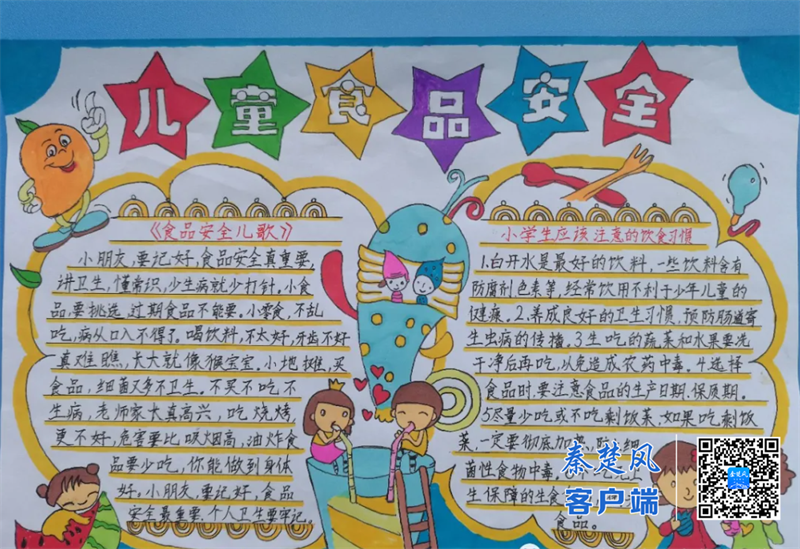 儿童食品安全
《食品安全儿歌》
小朋友,要记好,食品安全真重要,
讲卫生,懂常识,少生病就少打针,小食
品要挑选,过期食品不能要。小零食,不乱
吃,病从口入不得了。喝饮料,不太好,牙齿不好
真难瞧,长大就像猴宝宝。小地摊,买
食品,细菌又多不卫生。不买不吃不
生病,老师家长真高兴,吃烧烤,
更不好,危害要比吸烟高,油炸食
品要少吃,你能做到身体
好。小朋友,要记好,食品
安全最重要,个人卫生要牢记。
小学生应该注意的饮食习惯
1.白开水是最好的饮料,一些饮料含有
防腐剂色素等,经常饮用不利于少年儿童的
健康。2.养成良好的卫生习惯,预防肠道寄
生虫病的传播。3生吃的蔬菜和水果要洗
干净后再吃,以免造成农药中毒。4选择
食品时,要注意食品的生产日期、保质期。
5尽量少吃或不吃剩饭菜,如果吃剩饭
菜,一定要彻底加热,防
菌性食物中毒。
生保障的生食
食品。
秦楚风
客户端
秦楚风